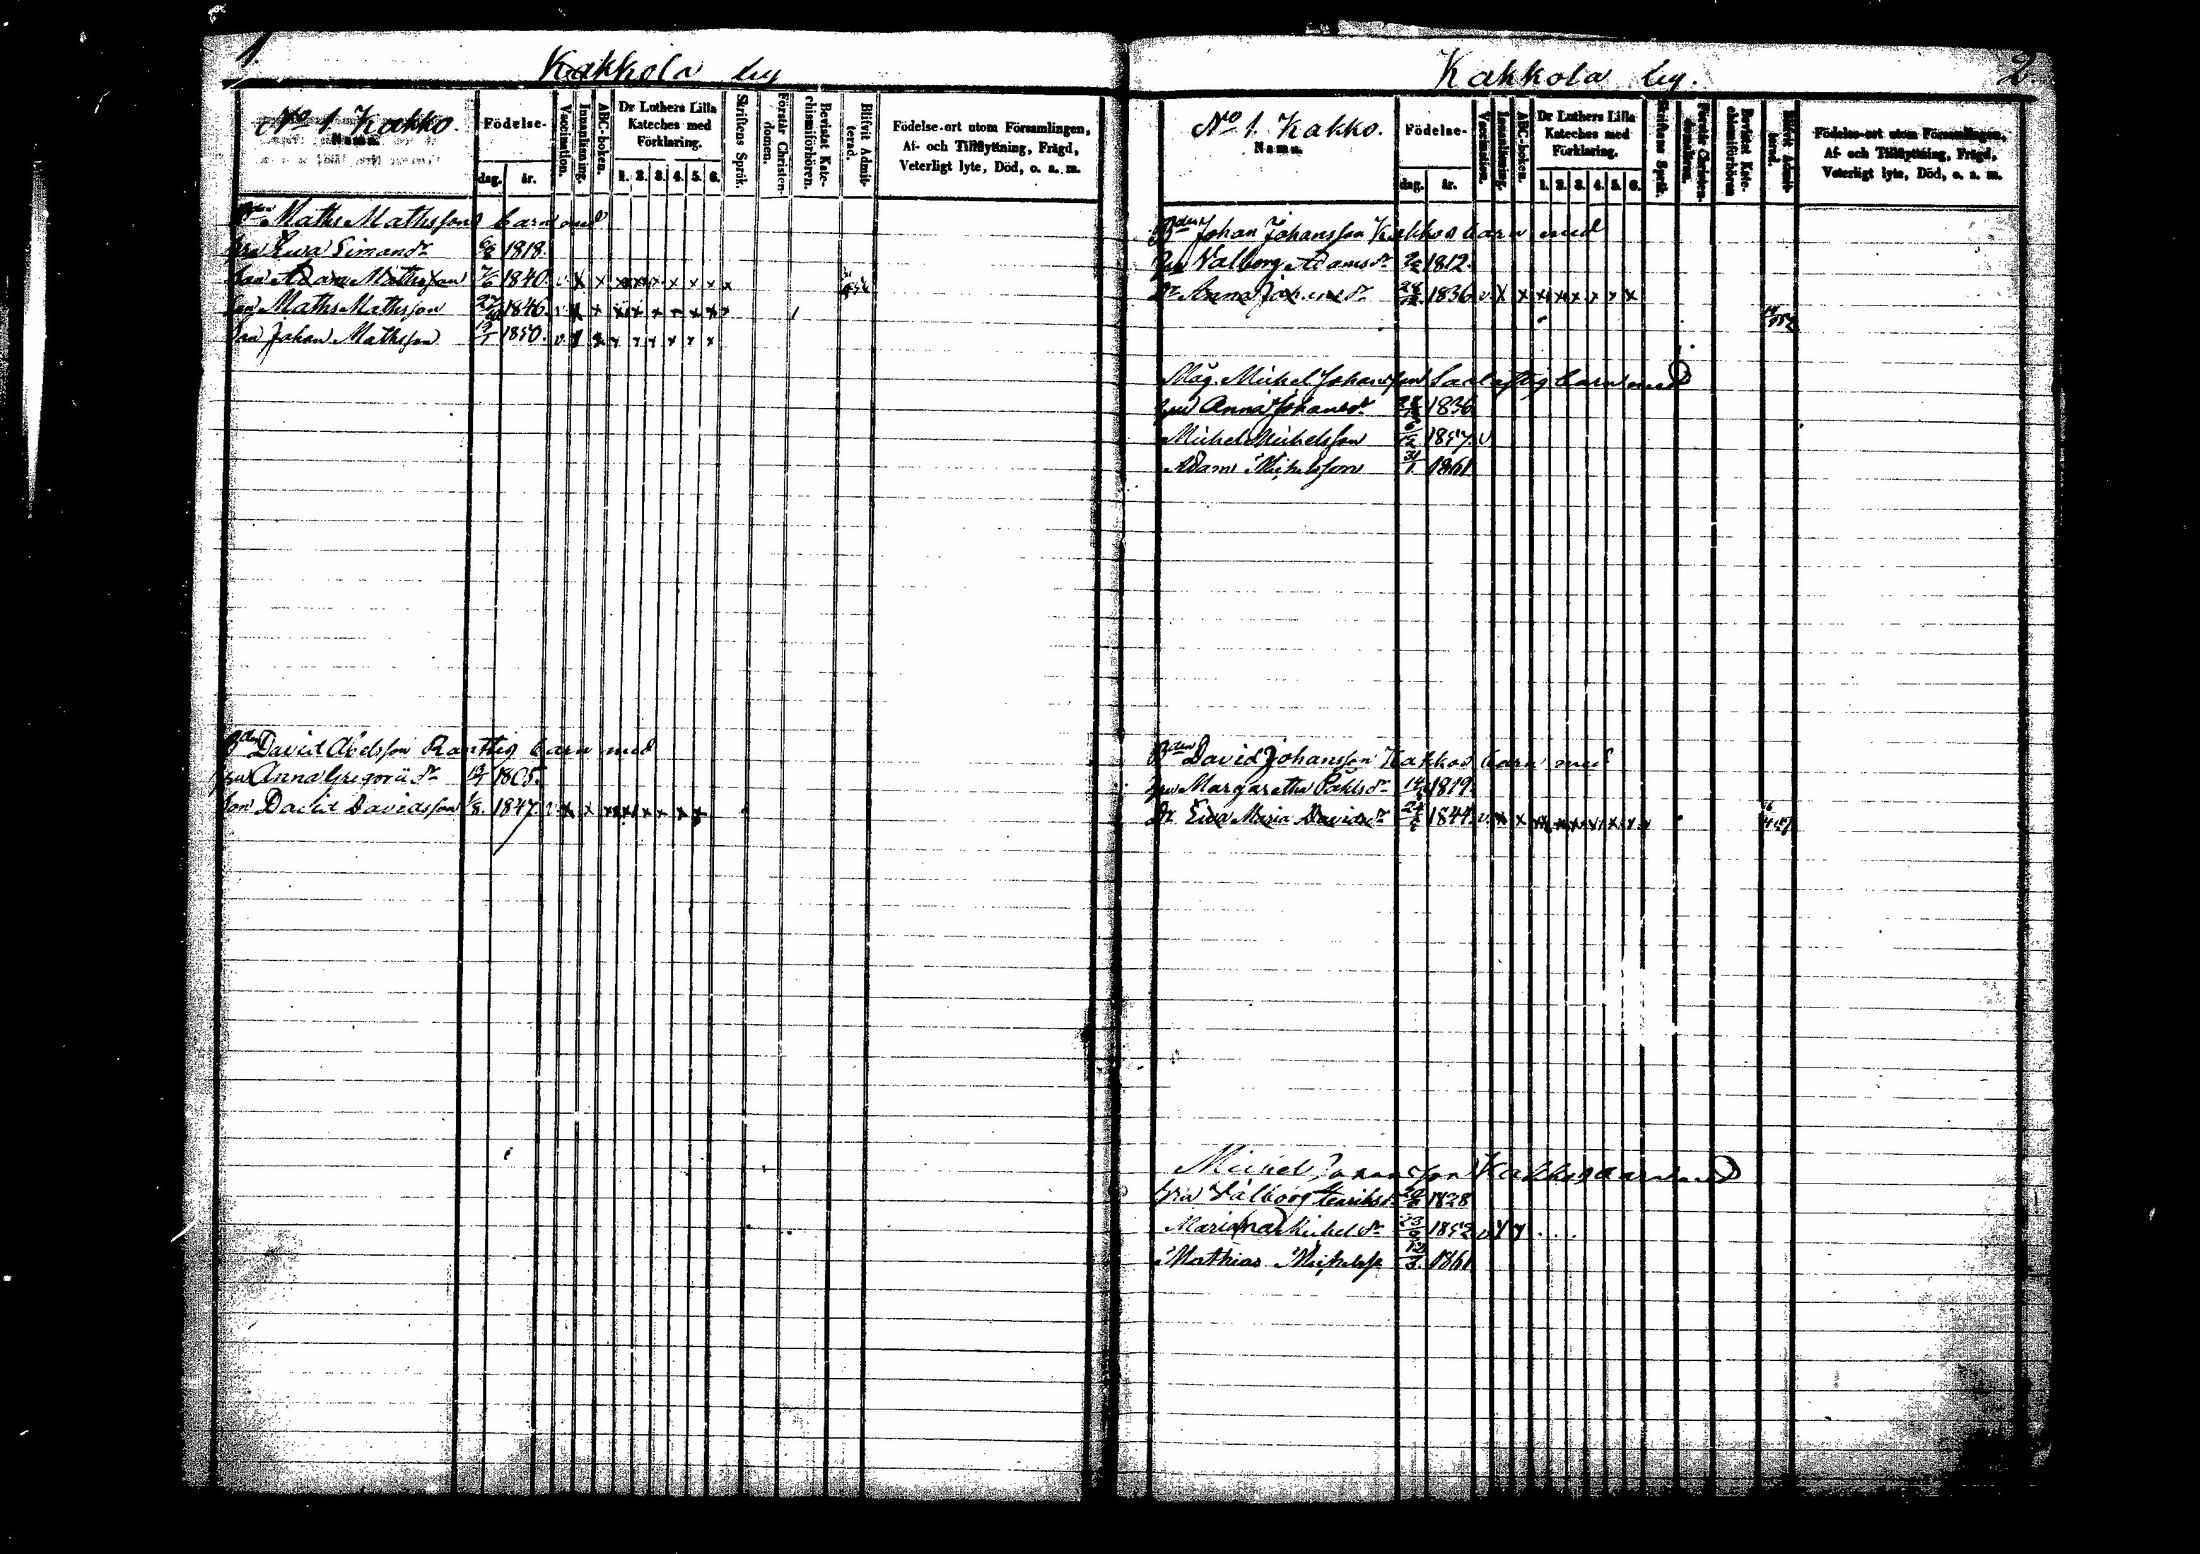 1.
Kakkola by
No 1 Kakko.
Namn.
Födelse-
dag. år.
Vaccination.
Innanläsning.
ABC-boken.
Dr Luthers Lilla Kateches med Förklaring.
1. 2. 3. 4. 5. 6.
Skriftens Språk.
Förstår Christendomen.
Bevistat Katechismiförhören.
Blifvit Admitterad.
Födelse-ort utom Församlingen,
Af- och Tillflyttning, Frägd,
Veterligt lyte, Död, o. a. m.
Bden Maths Mathssons barn med
hru Simonsdr 6/8 1818.
Son Adam Mathsson 7/6 1840. v x x x x x x x x x
Son Maths Mathsson 1846. v x x x x x x x x
Son Johan Mathsson 1850. v x x x x x x x x
Bden David Abelsson barn med
hru Anna Gregorii dr 1805.
Son David Davidsson 1/8. 1847. v x x x x x x x x
2
Kakkola by.
No 1. Kakko.
Namn.
Födelse-
dag. år.
Vaccination.
Innanläsning.
ABC-boken.
Dr Luthers Lilla Kateches med Förklaring.
1. 2. 3. 4. 5. 6.
Skriftens Språk.
Förstår Christendomen.
Bevistat Katechismiförhören
Blifvit Admitterad.
Födelse-ort utom Församlingen,
Af- och Tillflyttning, Frägd,
Veterligt lyte, Död, o. a. m.
Bden Johan Johansson Kakkos barn med
hru Valborg Adamsdr 1812.
Dr Anna Johansdr 1836 v x x x x x x x x
Måg. Michel Johansson barn med
hru Anna Johansdr 1836
Michel Michelsson 6/12 1857. v
Adam Michelsson 31/1. 1861
Bden David Johansson Kakkos barn med
hru Margaretha Påhlsdr 1819.
Dr Ewa Maria Davidsdr 1844. v x x x x x x x x
Michel Johansson Kakkos barn med
hru Valborg Henriksdr 1828
Mariana Michelsdr 1852 v
Mathias Michelss 1861